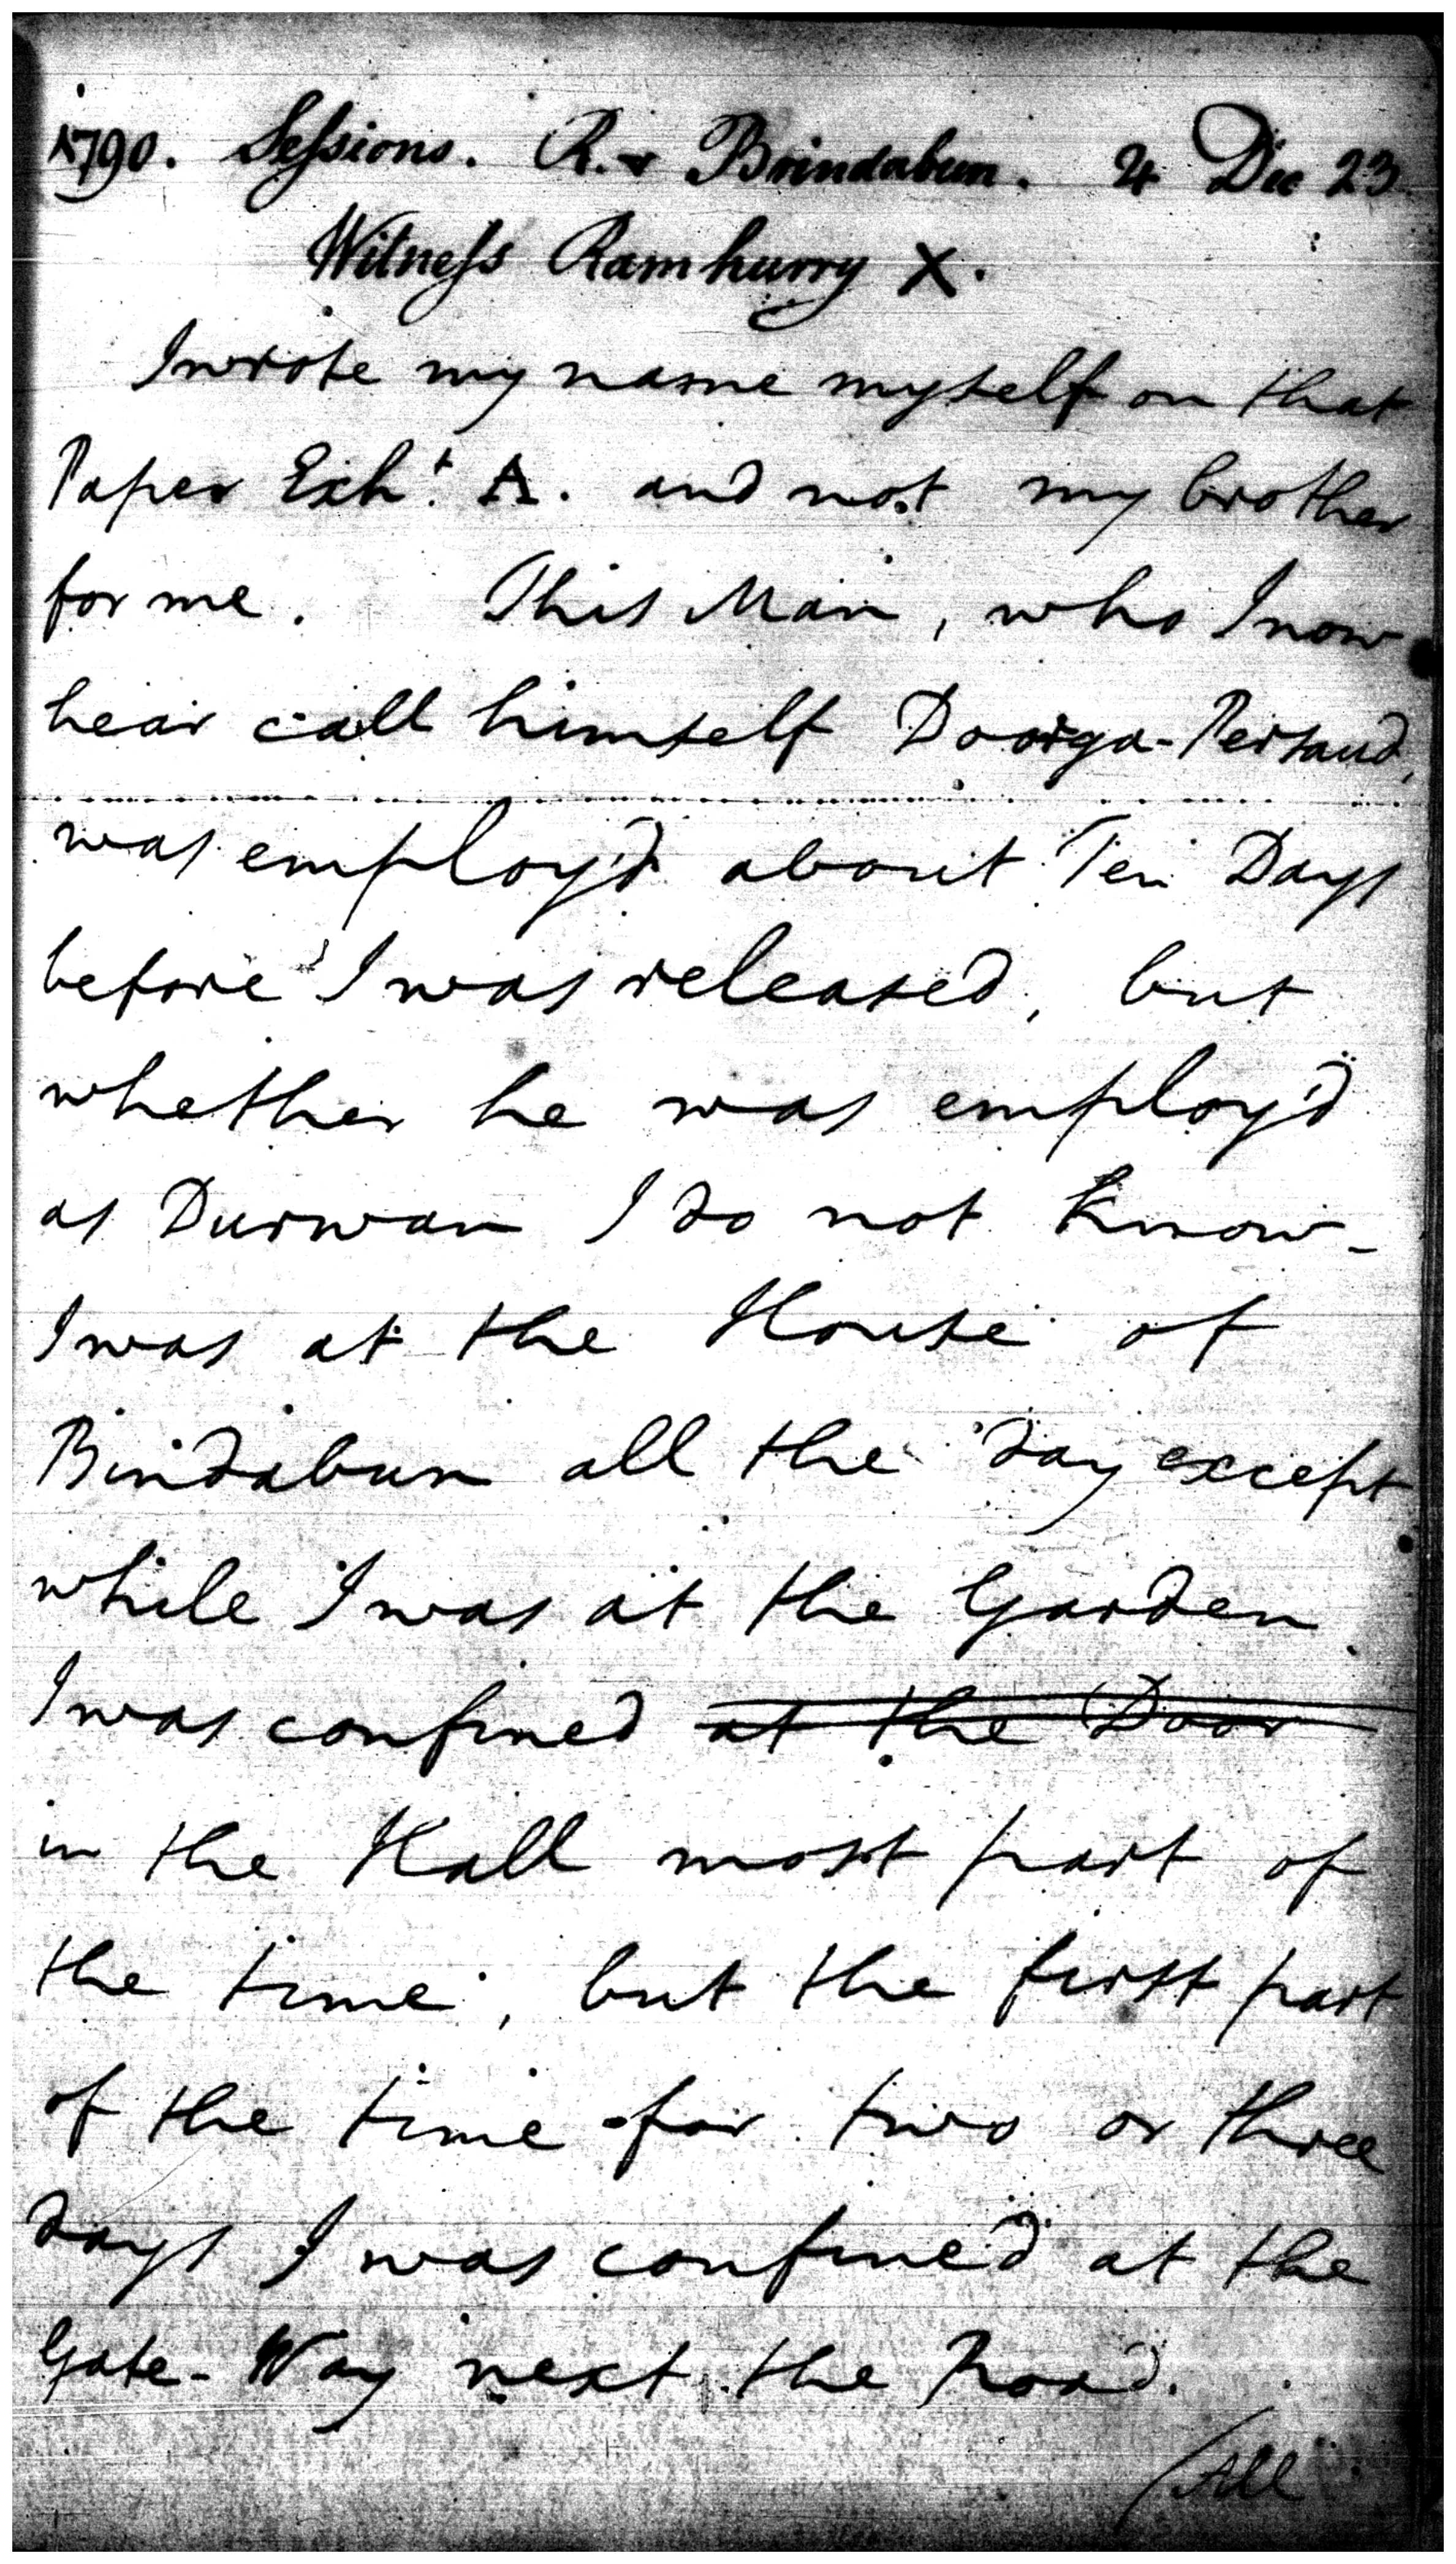 1790. Sessions. R. v Brindabun. 4 Dec 23
Witness Ramhurry X.
I wrote my name myself on that
Paper Exht. A. and not my brother
for me. This Man, who I now
hear call himself Doorga-Persaud,
was employ'd about Ten Days
before I was released, but
whether he was employ'd
as Durwan I do not know_
I was at the House of
Bindabun all the day except
while I was at the Garden.
I was confined at the Door
in the Hall most part of
the time, but the first part
of the time for two or three
days I was confined at the
Gate-Way next the Road.
(All